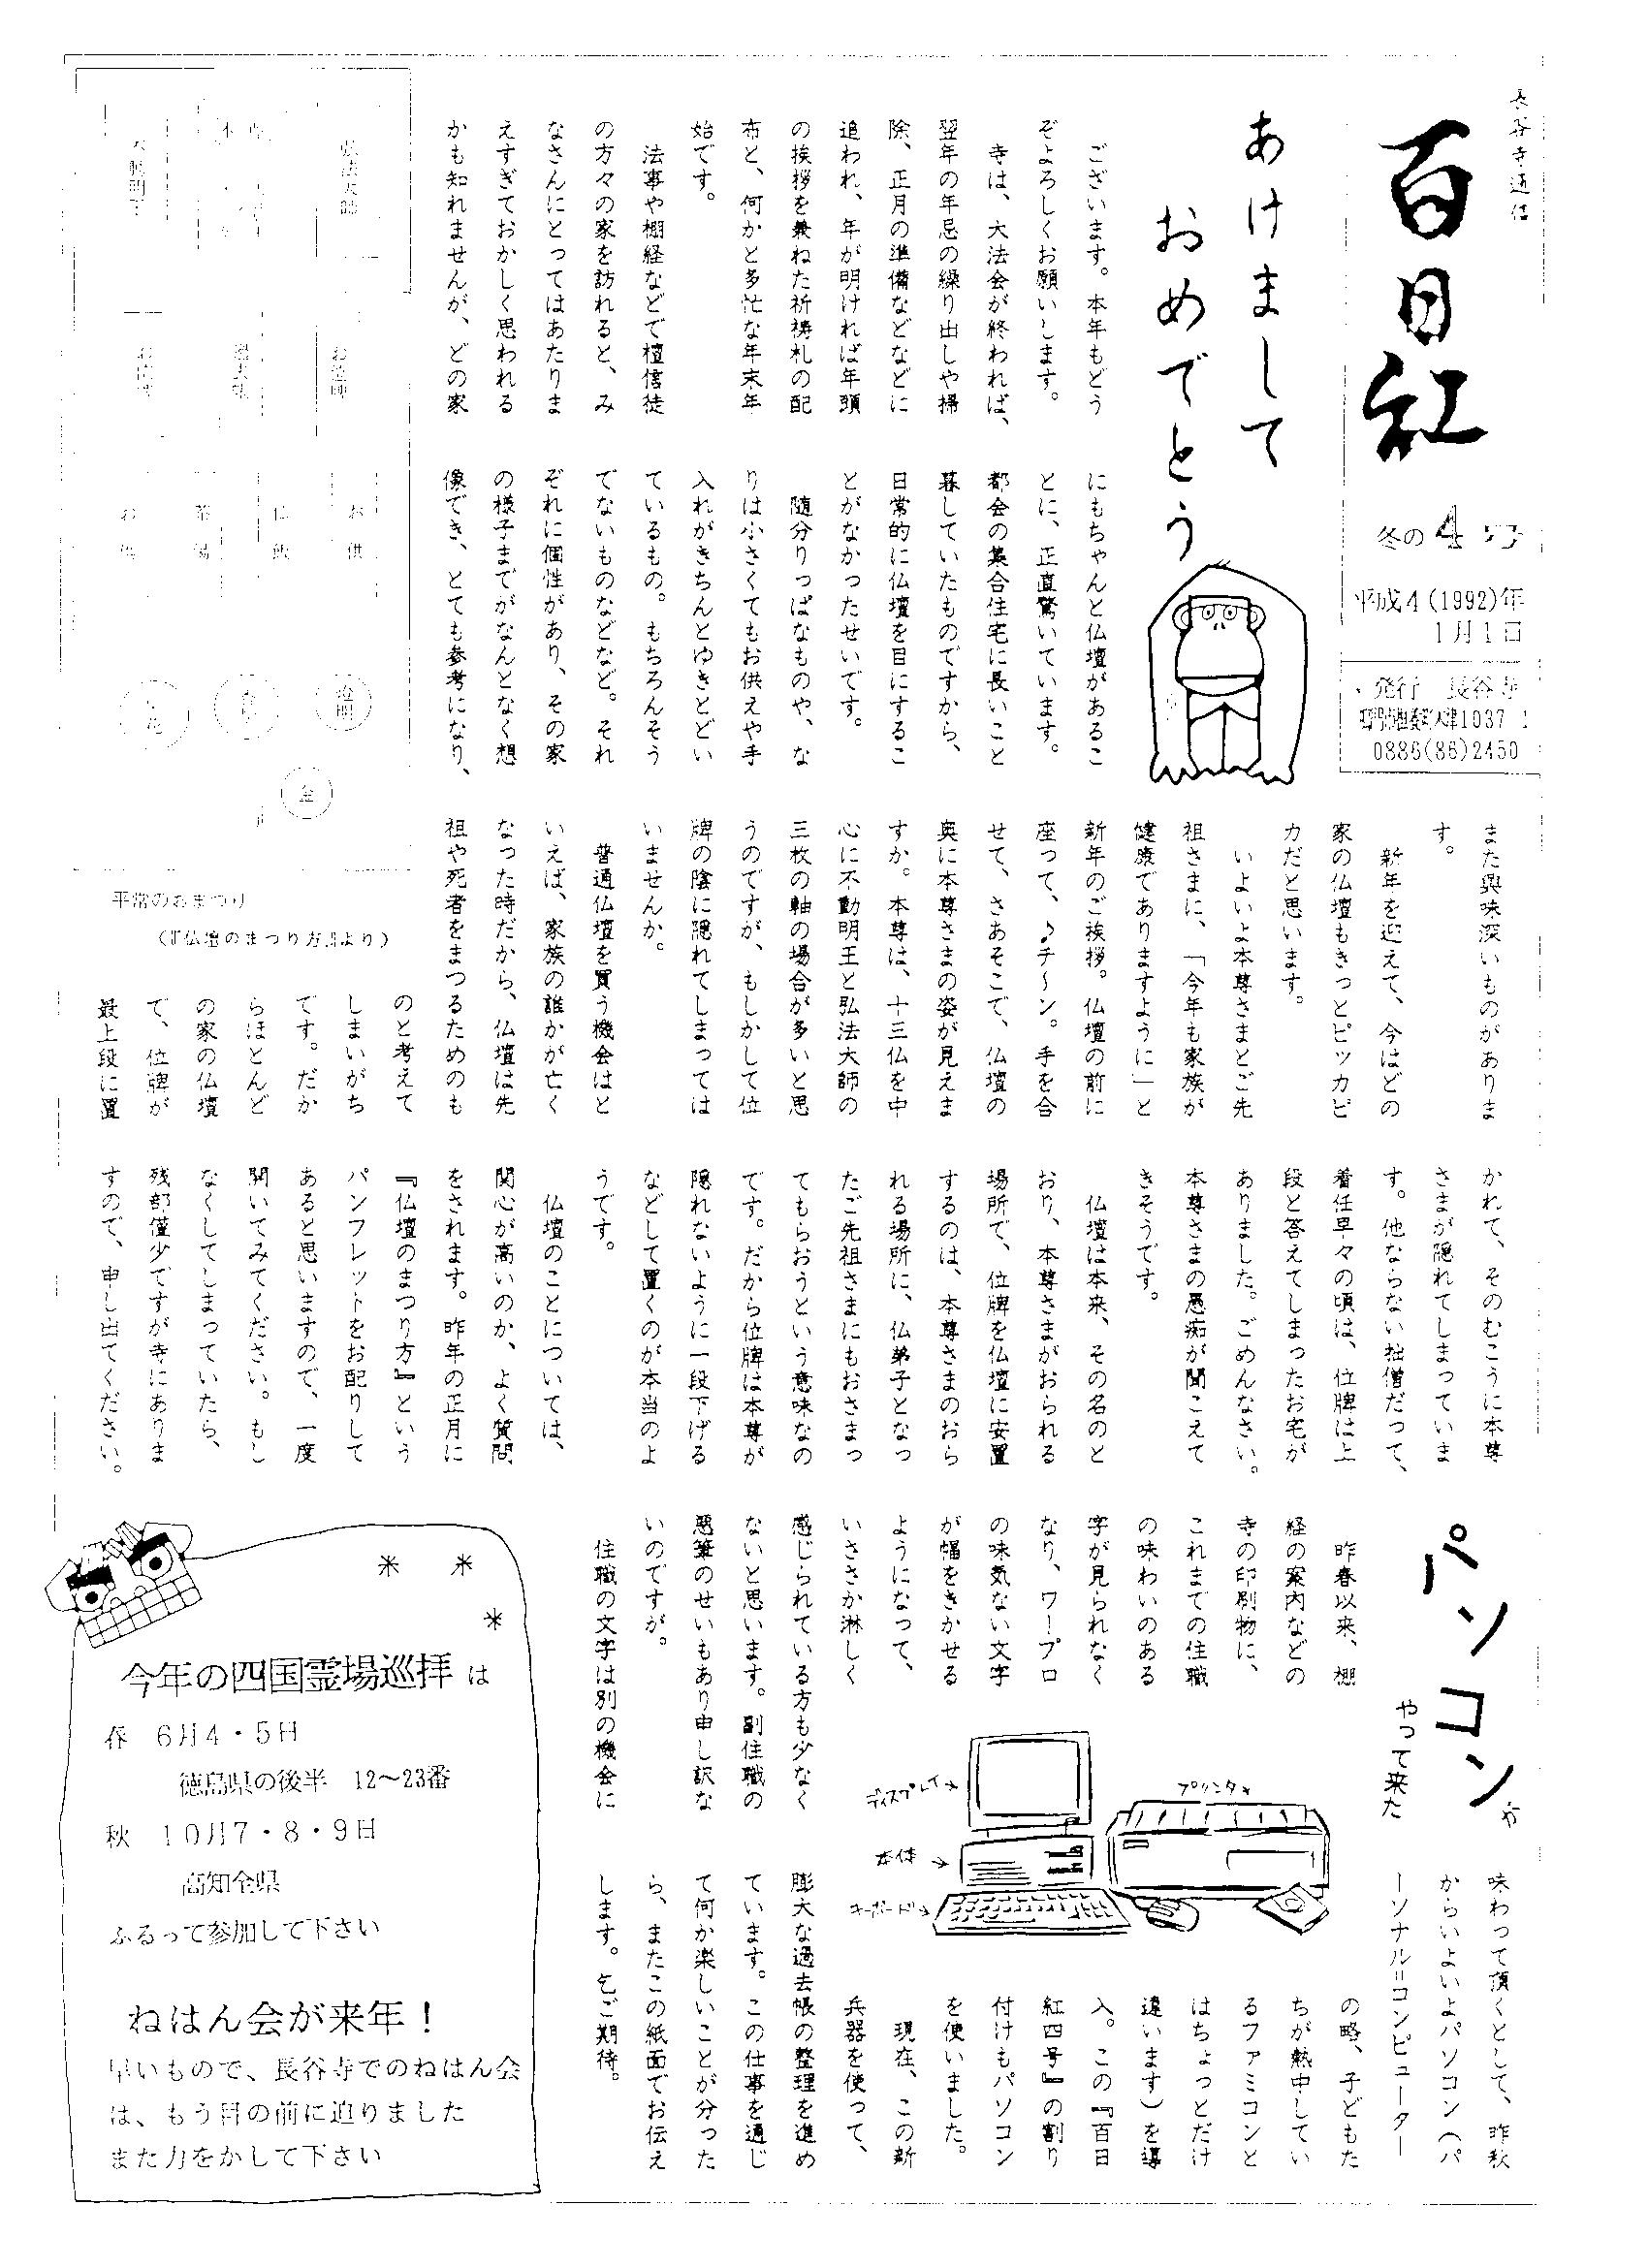 長谷寺通信
百日紅
冬の4号
平成4(1992)年
1月1日
発行 長谷寺
0886(86)2450
あけまして
おめでとう
ございます。本年もどう
ぞよろしくお願いします。
寺は、大法会が終われば、
翌年の年忌の繰り出しや掃
除、正月の準備などなどに
追われ、年が明ければ年頭
の挨拶を兼ねた祈祷札の配
布と、何かと多忙な年末年
始です。
法事や棚経などで檀信徒
の方々の家を訪れると、み
なさんにとってはあたりま
えすぎておかしく思われる
かも知れませんが、どの家
にもちゃんと仏壇があるこ
とに、正直驚いています。
都会の集合住宅に長いこと
暮していたものですから、
日常的に仏壇を目にするこ
とがなかったせいです。
随分りっぱなものや、な
りは小さくてもお供えや手
入れがきちんとゆきとどい
ているもの。もちろんそう
でないものなどなど。それ
ぞれに個性があり、その家
の様子までがなんとなく想
像でき、とても参考になり、
また興味深いものがありま
す。
新年を迎えて、今はどの
家の仏壇もきっとピッカピ
カだと思います。
いよいよ本尊さまとご先
祖さまに、「今年も家族が
健康でありますように」と
新年のご挨拶。仏壇の前に
座って、♪チ〜ン。手を合
せて、さあそこで、仏壇の
奥に本尊さまの姿が見えま
すか。本尊は、十三仏を中
心に不動明王と弘法大師の
三枚の軸の場合が多いと思
うのですが、もしかして位
牌の陰に隠れてしまっては
いませんか。
普通仏壇を買う機会はと
いえば、家族の誰かが亡く
なった時だから、仏壇は先
祖や死者をまつるためのも
のと考えて
しまいがち
です。だか
らほとんど
の家の仏壇
で、位牌が
最上段に置
かれて、そのむこうに本尊
さまが隠れてしまっていま
す。他ならない拙僧だって、
着任早々の頃は、位牌は上
段と答えてしまったお宅が
ありました。ごめんなさい。
本尊さまの愚痴が聞こえて
きそうです。
仏壇は本来、その名のと
おり、本尊さまがおられる
場所で、位牌を仏壇に安置
するのは、本尊さまのおら
れる場所に、仏弟子となっ
たご先祖さまにもおさまっ
てもらおうという意味なの
です。だから位牌は本尊が
隠れないように一段下げる
などして置くのが本当のよ
うです。
仏壇のことについては、
関心が高いのか、よく質問
をされます。昨年の正月に
『仏壇のまつり方』という
パンフレットをお配りして
あると思いますので、一度
開いてみてください。もし
なくしてしまっていたら、
残部僅少ですが寺にありま
すので、申し出てください。
弘法大師
お位牌
過去帳
お位牌
お供
仏飯
茶湯
お供
金
平常のおまつり
(『仏壇のまつり方』より)
パソコンが
やって来た
昨春以来、棚
経の案内などの
寺の印刷物に、
これまでの住職
の味わいのある
字が見られなく
なり、ワープロ
の味気ない文字
が幅をきかせる
ようになって、
いささか淋しく
感じられている方も少なく
ないと思います。副住職の
悪筆のせいもあり申し訳な
いのですが。
住職の文字は別の機会に
味わって頂くとして、昨秋
からいよいよパソコン(パ
ーソナル=コンピューター
の略、子どもた
ちが熱中してい
るファミコンと
はちょっとだけ
違います)を導
入。この『百日
紅四号』の割り
付けもパソコン
を使いました。
現在、この新
兵器を使って、
膨大な過去帳の整理を進め
ています。この仕事を通じ
て何か楽しいことが分った
ら、またこの紙面でお伝え
します。乞ご期待。
ディスプレイ
プリンタ
本体
キーボード
今年の四国霊場巡拝は
春 6月4・5日
徳島県の後半 12〜23番
秋 10月7・8・9日
高知全県
ふるって参加して下さい
ねはん会が来年!
早いもので、長谷寺でのねはん会
は、もう目の前に迫りました
また力をかして下さい